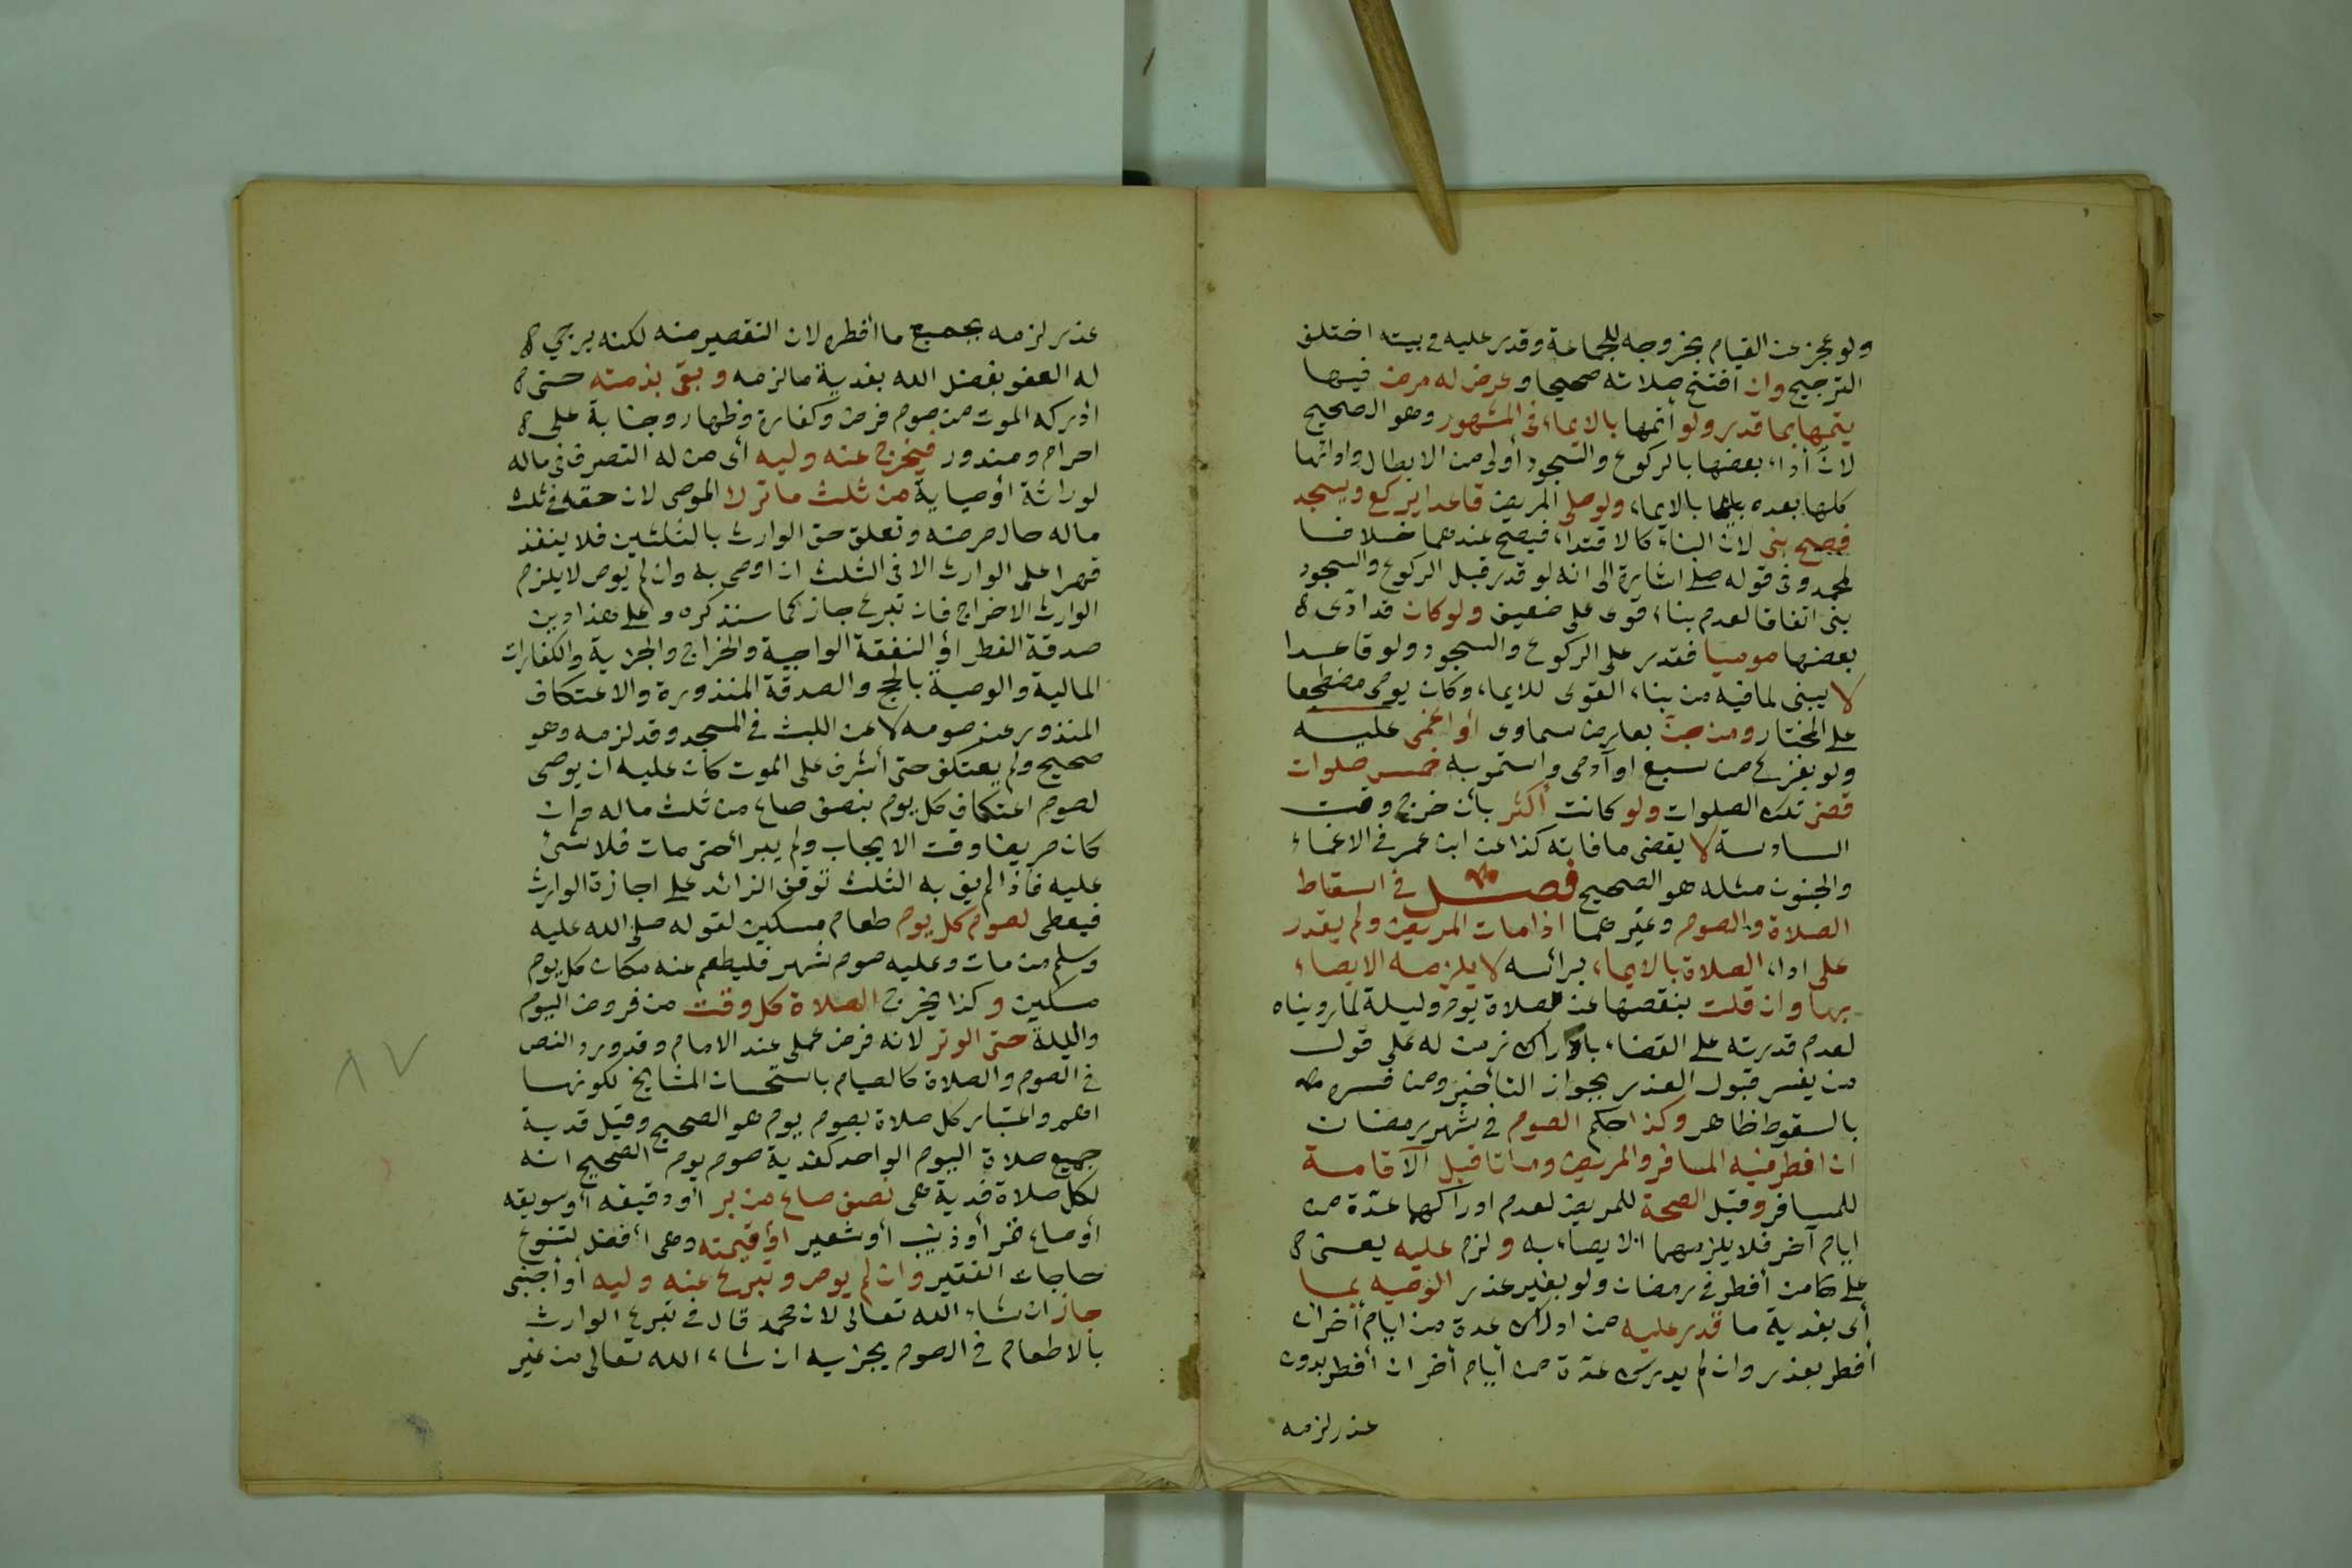 ولو عجز عن القيام بخروجه للجماعة وقدر عليه في بيته اختلف
الترجيح وان افتتح صلاته صحيحا وعرض له مرض فيها
يتمها بما قدر ولو أتمها بالايماء في المشهور وهو الصحيح
لان أداء بعضها بالركوع والسجود أولى من الابطال واداتها
كلها بعده بالايماء ولو صلى المريض قاعدا يركع ويسجد
فصح بنى لان البناء كالاقتداء فيصح عندهما خلافا
لمحمد وفي قوله صلى اشارة الى انه لو قدر قبل الركوع والسجود
بنى اتفاقا لعدم بناء قوى على ضعيف ولو كان قد ادّى
بعضها موميا فقدر على الركوع والسجود ولو قاعدا
لا يبنى لما فيه من بناء القوى للايماء وكان يومى مضطجعا
على المختار ومن جن بعارض سماوى أو اغمى عليه
ولو بفزع من سبع او آدمى واستمر به خمس صلوات
قضى تلك الصلوات ولو كانت أكثر بأن خرج وقت
السادسة لا يقضى ما فاته كذا عن ابن عمر في الاغماء
والجنون مثله هو الصحيح فصل في اسقاط
الصلاة والصوم وغيرهما اذا مات المريض ولم يقدر
على اداء الصلاة بالايماء برأسه لا يلزمه الايصاء
بها وان قلت بنقصها عن صلاة يوم وليلة لما رويناه
لعدم قدرته على القضاء بادراك زمن له على قول
من يفسر قبول العذر بجواز التأخير ومن فسره
بالسقوط ظاهر وكذا حكم الصوم في شهر رمضان
ان افطر فيه المسافر والمريض وماتا قبل الاقامة
للمسافر وقبل الصحة للمريض لعدم ادراكهما عدّة من
ايام آخر فلا يلزمهما الايصاء به ولزم عليه يعنى
على كل من أفطر في رمضان ولو بغير عذر الوصيه بما
أى بفدية ما قدر عليه من ادراك عدة من ايام أخر ان
أفطر بعذر وان لم يدرك عدّة من أيام أخر ان أفطر بدون
عذر لزمه
عذر لزمه بجميع ما أفطره لان التقصير منه لكنه يرجى
له العفو بفضل الله بفدية ما لزمه وبقى بذمته حتى
ادركه الموت من صوم فرض وكفارة وظهار وجناية على
احرام ومنذور فيخرج عنه وليه أى من له التصرف في ماله
لوراثة أو وصاية من ثلث ما ترك الموصى لان حقه في ثلث
ماله حال مرضه وتعلق حق الوارث بالثلثين فلا ينفذ
قهرا على الوارث الا في الثلث ان اوصى به وان لم يوص لا يلزم
الوارث الاخراج فان تبرع جاز كما سنذكره وعلى هذا دين
صدقة الفطر أو النفقة الواجبة والخراج والجزية والكفارات
المالية والوصية بالحج والصدقة المنذورة والاعتكاف
المنذور عن صومه لا عن اللبث في المسجد وقد لزمه وهو
صحيح ولم يعتكف حتى أشرف على الموت كان عليه ان يوصى
لصوم اعتكاف كل يوم بنصف صاع من ثلث ماله وان
كان مريضا وقت الايجاب ولم يبرأ حتى مات فلا شئ
عليه فاذا لم يف به الثلث توقف الزائد على اجازة الوارث
فيعطى لصوم كل يوم طعام مسكين لقوله صلى الله عليه
وسلم من مات وعليه صوم شهر فليطعم عنه مكان كل يوم
مسكين وكذا يخرج الصلاة كل وقت من فروض اليوم
والليلة حتى الوتر لانه فرض عملى عند الامام وقد ورد النص
في الصوم والصلاة كالصيام باستحسان المشايخ لكونها
اهم واعتبار كل صلاة بصوم يوم هو الصحيح وقيل فدية
جميع صلاة اليوم الواحد كفدية صوم يوم الصحيح انه
لكل صلاة فدية هى نصف صاع من بر أو دقيقه أو سويقه
أو صاع تمر أو زبيب أو شعير أو قيمته وهى أفضل لتنوع
حاجات الفقير وان لم يوص وتبرع عنه وليه أو أجنبى
جاز ان شاء الله تعالى لان محمد قال في تبرع الوارث
بالاطعام في الصوم يجزيه ان شاء الله تعالى من غير
٨٧